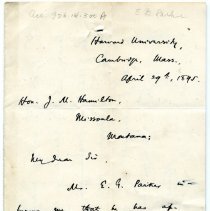 E B Parker
Harvard University,
Cambridge, Mass.
April 29th, 1895.
Hon. J. M. Hamilton,
Missoula,
Montana;
My dear Sir,
Mr. E. G. Parker in-
forms me that he has ap-